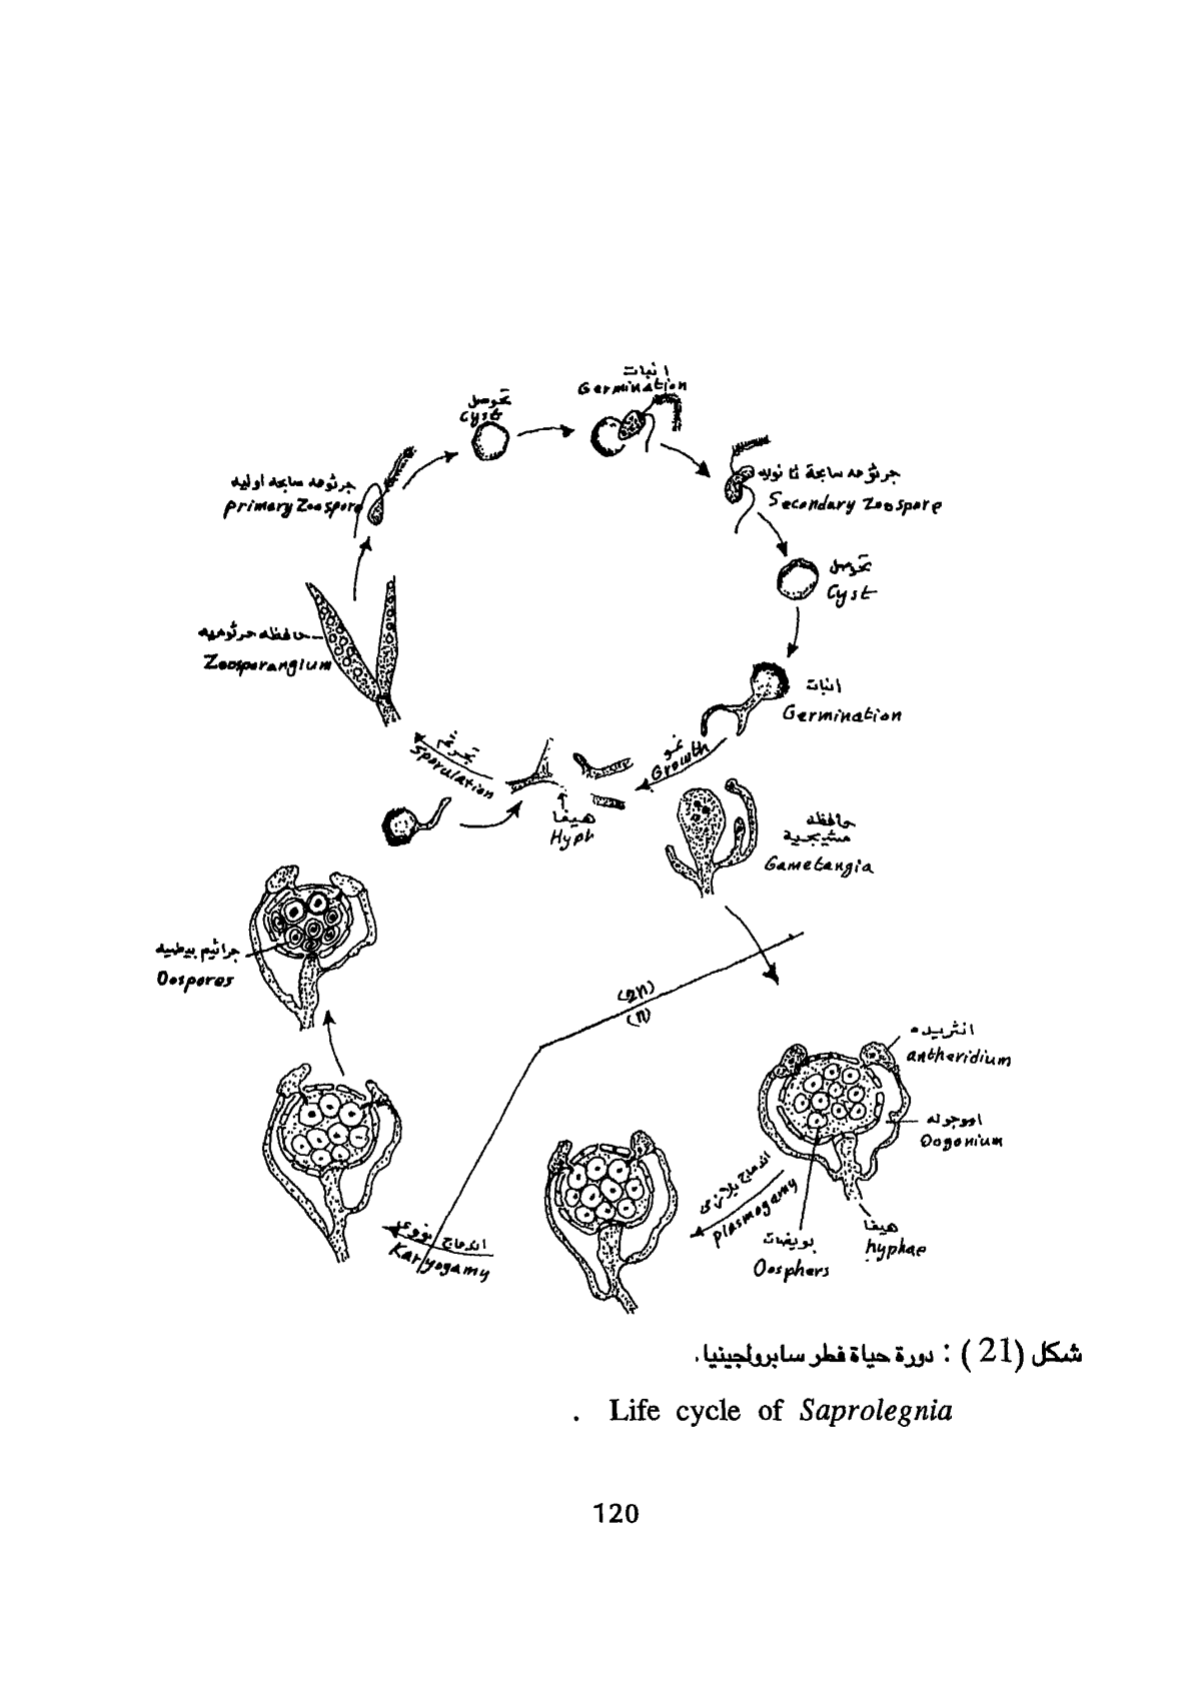 انبات
Germination
تحوصل
Cyst
جرثومه سابحه اوليه
primary Zoospore
جرثومه سابحة ثانويه
Secondary Zoospore
تحوصل
Cyst
حافظه جرثوميه
Zoosporangium
انبات
Germination
نمو
Growth
تجرثم
Sporulation
هيفا
Hyph
حافظه
مشيجية
Gametangia
جراثيم بيضيه
Oospores
(2n)
(n)
انثريده
antheridium
اووجونه
Oogonium
اندماج بلازمى
plasmogamy
هيفا
hyphae
بويضات
Oosphers
اندماج نووى
Karyogamy
شكل (21 ) : دورة حياة فطر سابرولجينيا.
. Life cycle of Saprolegnia
120